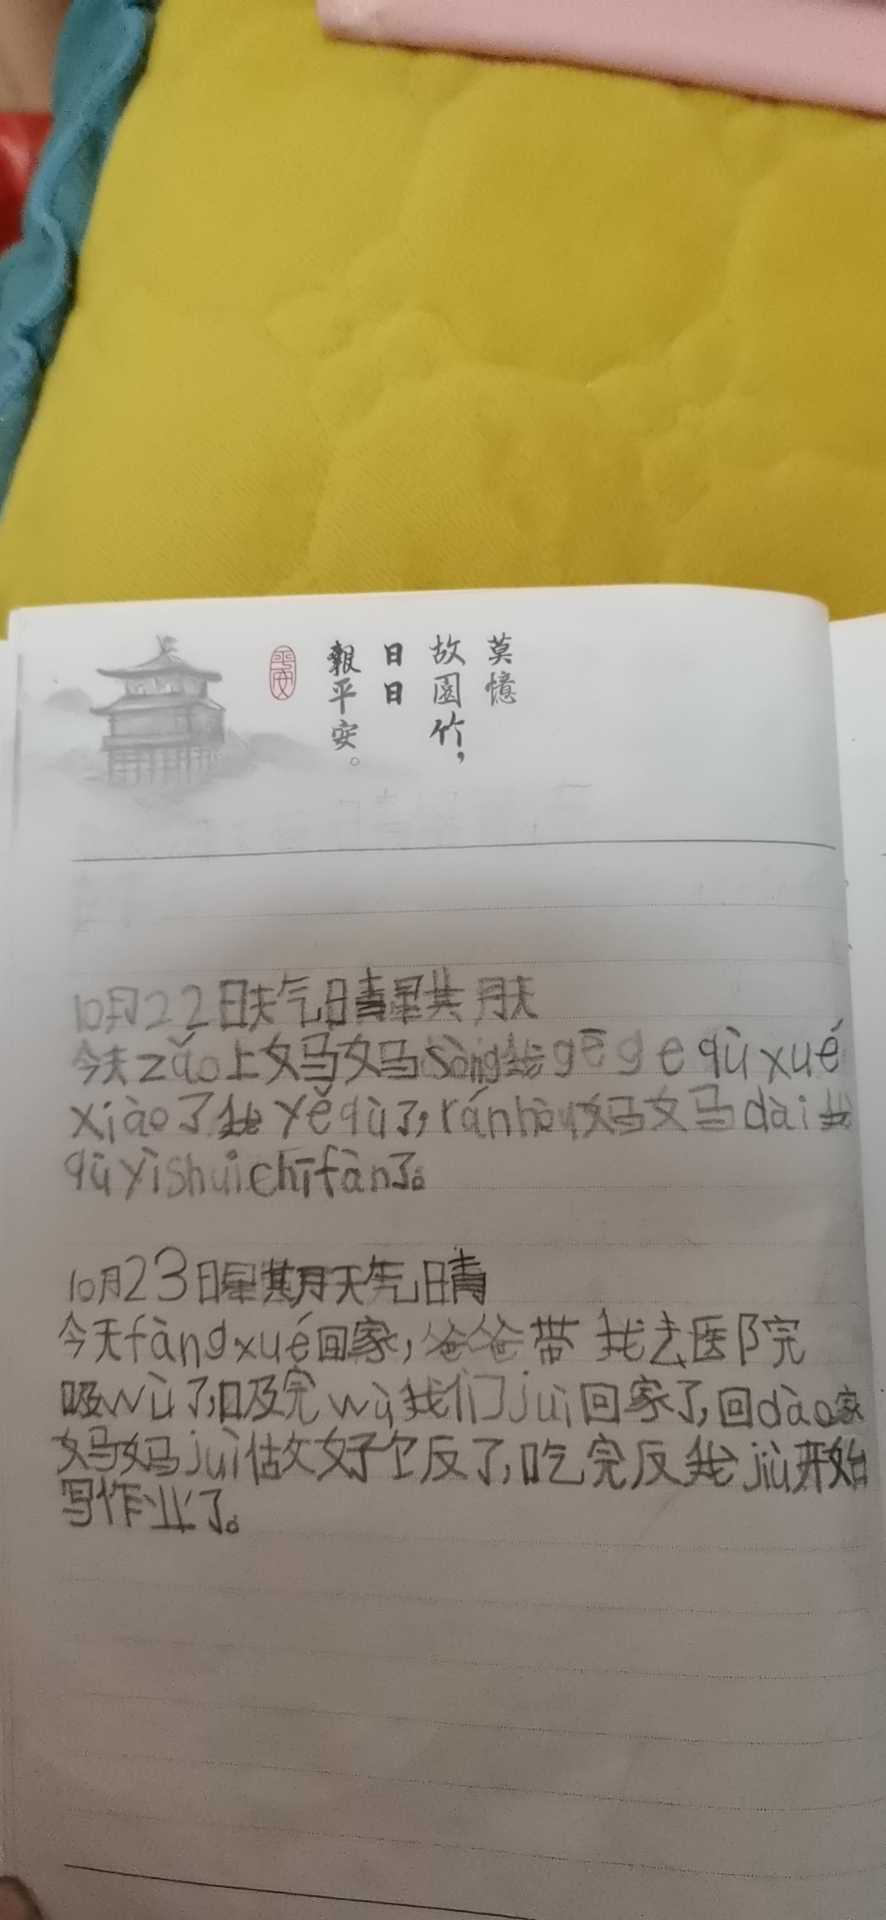 莫憶
故園竹，
日日
報平安。
平安
10月22日天气晴星其月天
今天zǎo上妈妈sòng我gēge qù xué
xiào了我yě qù了,ránhòu妈妈dài我
qù yìshuì chīfàn了。
10月23日星期天天气晴
今天fàngxué回家,爸爸带我去医院
吸wù了,吸完wù我们juì回家了,回dào家
妈妈juì做好饣反了,吃完反我jiù开始
写作业了。